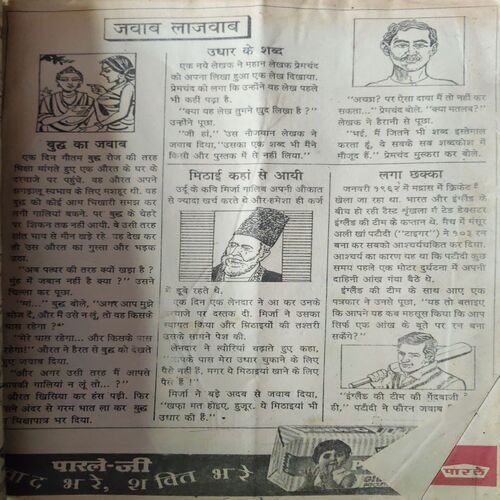 जवाब लाजवाब
बुद्ध का जवाब
एक दिन गौतम बुद्ध रोज की तरह
भिक्षा मांगते हुए एक औरत के घर के
दरवाजे पर पहुंचे. वह औरत अपने
झगड़ालू स्वभाव के लिए मशहूर थी. वह
बुद्ध को कोई आम भिखारी समझ कर
लगी गालियां बकने. पर बुद्ध के चेहरे
पर शिकन तक नहीं आयी. वे उसी तरह
शांत भाव से मौन खड़े रहे. यह देख कर
तो उस औरत का गुस्सा और भड़क
उठा.
"अब पत्थर की तरह क्यों खड़ा है ?
मुंह में जबान नहीं है क्या ?" उसने
चिल्ला कर पूछा.
"मां..." बुद्ध बोले, "अगर आप मुझे
भोज दें, और मैं उसे न लूं, तो वह किसके
पास रहेगा ?"
"मेरे पास रहेगा... और किसके पास
रहेगा!" औरत ने हैरत से बुद्ध को देखते
हुए जवाब दिया.
"और अगर उसी तरह मैं आपसे
आपकी गालियां न लूं तो... ?"
औरत खिसिया कर हंस पड़ी. फिर
अंदर से गरम भात ला कर बुद्ध
का भिक्षापात्र भर दिया.
उधार के शब्द
एक नये लेखक ने महान लेखक प्रेमचंद
को अपना लिखा हुआ एक लेख दिखाया.
प्रेमचंद को लगा कि उन्होंने वह लेख पहले
भी कहीं पढ़ा है.
"क्या यह लेख तुमने खुद लिखा है ?"
उन्होंने पूछा.
"जी हां," उस नौजवान लेखक ने
जवाब दिया, "उसका एक शब्द भी मैंने
किसी और पुस्तक में से नहीं लिया."
"अच्छा? पर ऐसा दावा मैं तो नहीं कर
सकता..." प्रेमचंद बोले. "क्या मतलब?"
लेखक ने हैरानी से पूछा.
"भई, मैं जितने भी शब्द इस्तेमाल
करता हूं, वे सबके सब शब्दकोश में
मौजूद हैं." प्रेमचंद मुस्करा कर बोले.
मिठाई कहां से आयी
उर्दू के कवि मिर्जा गालिब अपनी औकात
से ज्यादा खर्च करते थे और हमेशा ही कर्ज
में डूबे रहते थे.
एक दिन एक लेनदार ने आ कर उनके
दरवाजे पर दस्तक दी. मिर्जा ने उसका
स्वागत किया और मिठाइयों की तश्तरी
उसके सामने पेश की.
लेनदार ने त्योरियां चढ़ाते हुए कहा,
"आपके पास मेरा उधार चुकाने के लिए
पैसे नहीं हैं, मगर ये मिठाइयां खाने के लिए
पैसे हैं !"
मिर्जा ने बड़े अदब से जवाब दिया,
"खफा मत होइए, हुजूर. ये मिठाइयां भी
उधार की हैं."
लगा छक्का
जनवरी १९६२ में मद्रास में क्रिकेट टेस्ट
खेला जा रहा था. भारत और इंग्लैंड के
बीच हो रही टैस्ट श्रृंखला में टेड डेक्सटर
इंग्लैंड की टीम के कप्तान थे. मैच में मंसूर
अली खां पटौदी ("टाइगर") ने १०३ रन
बना कर सबको आश्चर्यचकित कर दिया.
आश्चर्य का कारण यह था कि पटौदी कुछ
समय पहले एक मोटर दुर्घटना में अपनी
दाहिनी आंख गंवा बैठे थे.
इंग्लैंड की टीम के साथ आए एक
पत्रकार ने उनसे पूछा, "यह तो बताइए
कि आपने यह कब महसूस किया कि आप
सिर्फ एक आंख के बूते पर रन बना
सकेंगे?"
"इंग्लैंड की टीम की गेंदबाजी
ही," पटौदी ने फौरन जवाब
पारले-जी
स्वाद भरे, शक्ति भरे
पारले